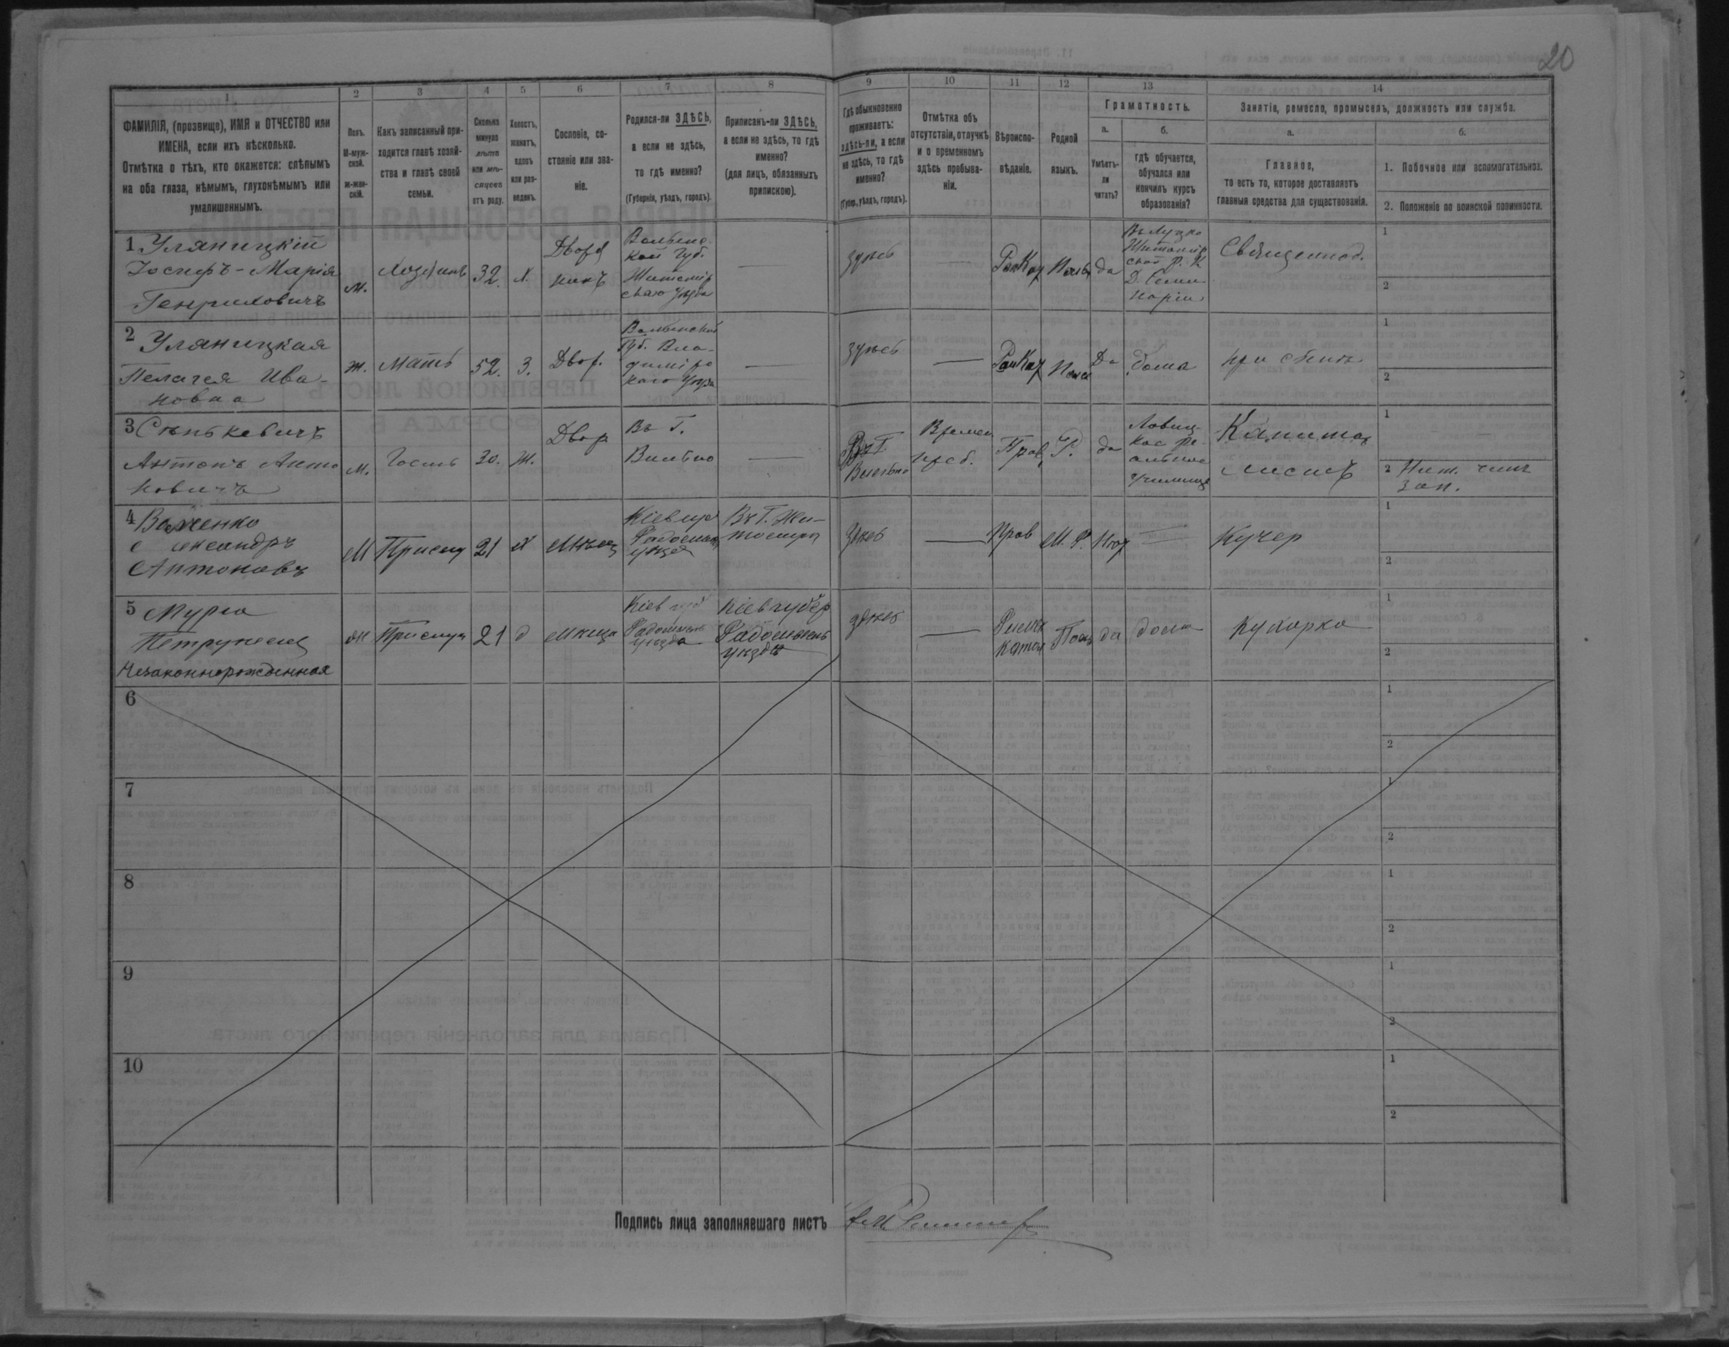 20
1 2 3 4 5 6 7 8 9 10 11 12 13 14
ФАМИЛІЯ, (прозвище), ИМЯ и ОТЧЕСТВО или
ИМЕНА, если ихъ нѣсколько.
Отмѣтка о тѣхъ, кто окажется: слѣпымъ
на оба глаза, нѣмымъ, глухонѣмымъ или
умалишеннымъ.
Полъ.
М-муж-
ской.
ж-жен-
скій.
Какъ записанный при-
ходится главѣ хозяй-
ства и главѣ своей
семьи.
Сколько
минуло
лѣтъ
или мѣ-
сяцевъ
отъ роду.
Холостъ,
женатъ,
вдовъ
или раз-
веденъ.
Сословіе, со-
стояніе или зва-
ніе.
Родился-ли ЗДѢСЬ,
а если не здѣсь,
то гдѣ именно?
(Губернія, уѣздъ, городъ).
Приписанъ-ли ЗДѢСЬ,
а если не здѣсь, то гдѣ
именно?
(для лицъ, обязанныхъ
припискою).
Гдѣ обыкновенно
проживаетъ:
здѣсь-ли, а если
не здѣсь, то гдѣ
именно?
(Губер., уѣздъ, городъ).
Отмѣтка объ
отсутствіи, отлучкѣ
и о временномъ
здѣсь пребыва-
ніи.
Вѣроиспо-
вѣданіе.
Родной
языкъ.
Грамотность.
а.
Умѣетъ-
ли
читать?
б.
гдѣ обучается,
обучался или
кончилъ курсъ
образованія?
Занятія, ремесло, промыселъ, должность или служба.
а.
Главное,
то есть то, которое доставляетъ
главныя средства для существованія.
б.
1. Побочное или вспомогательное.
2. Положеніе по воинской повинности.
1 Уляницкій
Іосифъ-Марія
Генриховичъ
м.
Хозяинъ
32.
х.
Дворя
нинъ
Волынс
кой Губ.
Житомір
скаго Уѣзда
здѣсь
РимКат
Польс
да
Въ Луцко
Житомір
ской Р. К
Д. Семи
наріи
Священнод.
1
2
2 Уляницкая
Пелагея Ива-
новна
ж.
Мать
52.
З.
Двор.
Волынской
Губ. Вла-
димірс
каго Уѣзда
здѣсь
РимКат
Польс
Да
дома
при сынѣ
1
2
3 Сѣнькевичъ
Антонъ Анто
новичъ
м.
Гость
30.
Ж.
Двор
Въ Г.
Вильно
Въ Г
Вильно
Времен
преб.
Прав
Р.
да
Ловиц-
кое ре-
альное
училище
1
2 Ниж. чинъ
зап.
4 Важенко
Александръ
Антоновъ
М
Прислуг
21
Х
Мѣщ
Кіев губ
Радомысл
уѣзда
Въ Г. Жи-
томирѣ
здѣсь
Прав
М. Р.
Нѣт
Кучер
1
2
5 Мурга
Петрунеля
Незаконнорожденная
ж
Прислуга
21
д
Мѣща
Кіев губ
Радомысль
уѣзда
Кіев губер
Радомысль
уѣзда
здѣсь
Римск
Катол
Польс
да
дома
Кухарка
1
2
6
1
2
7
1
2
8
1
2
9
1
2
10
1
2
Подпись лица заполнявшаго листъ